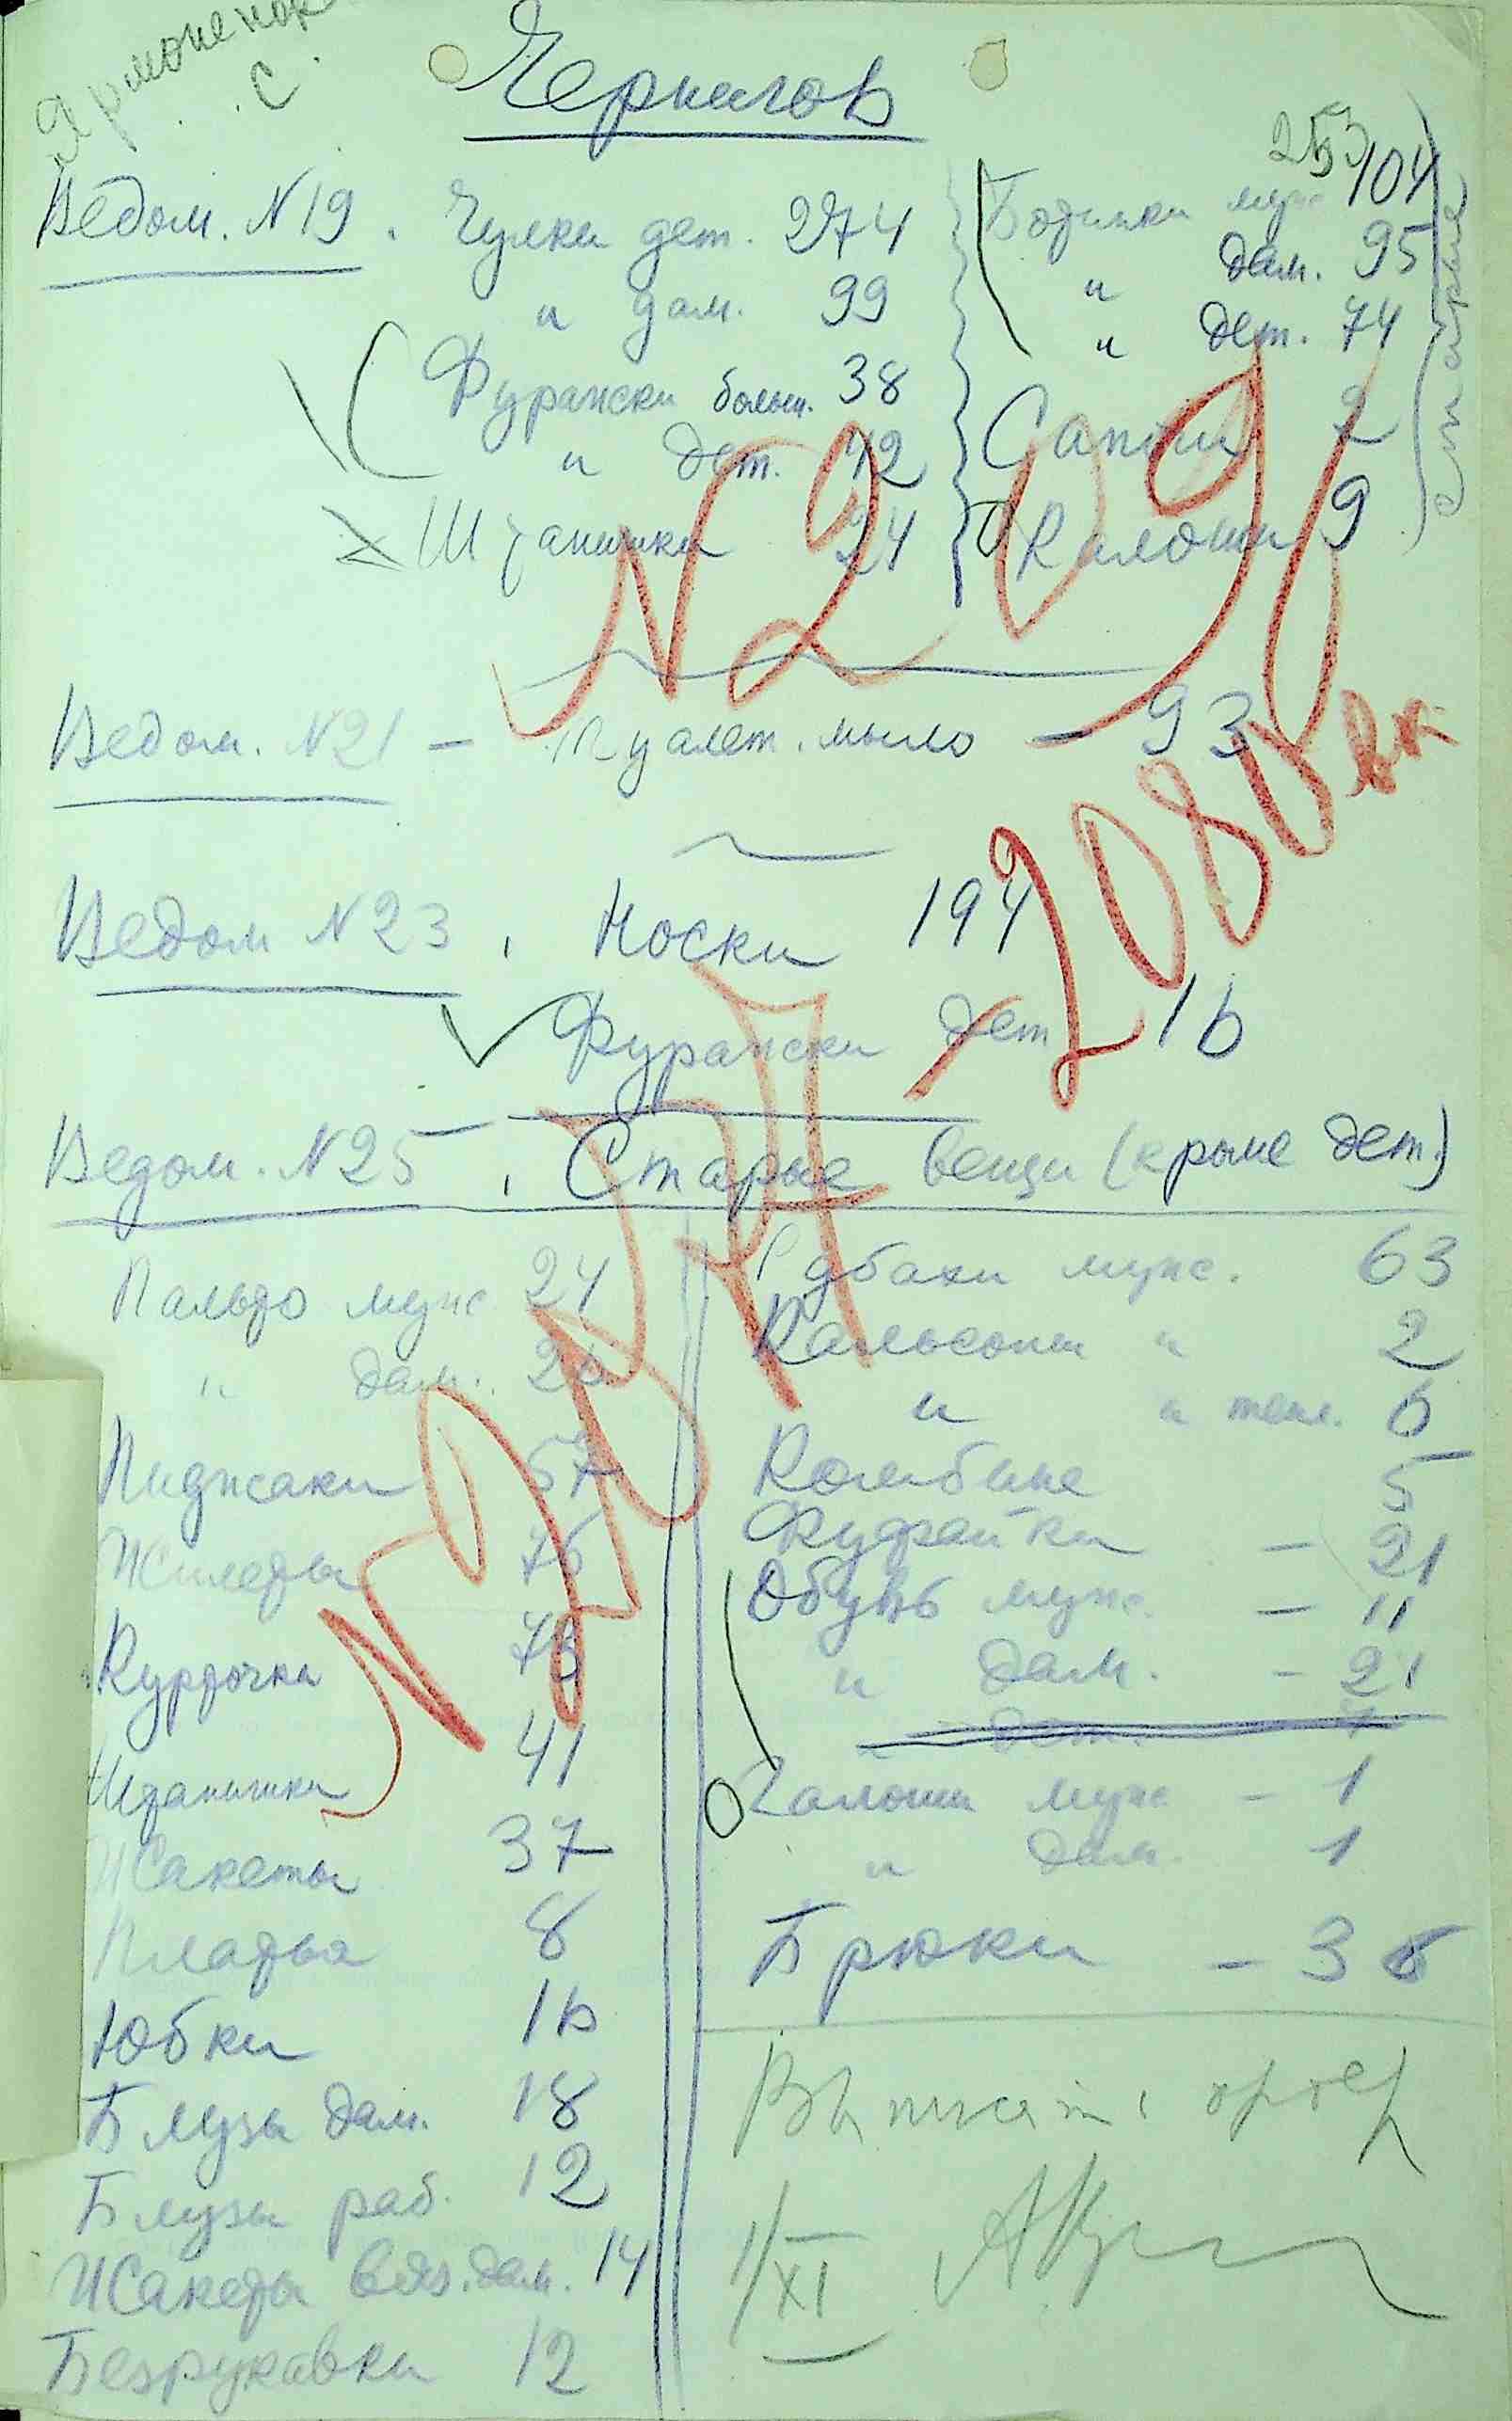 С.
Чернигов
253
Ведом. N19. Чулки дет. 274
" дам. 99
Фуражки больш. 38
" дет. 42
Штанишки 24
Ботинки муж 104
" дам. 95
" дет. 74
Сапоги 2
Калоши 9
старые
Ведом. N21 – туалет. мыло – 93
Ведом N23. Носки 194
Фуражки дет 16
Ведом. N25. Старые вещи (кроме дет.)
Пальто муж 24
" дам. 26
Пиджаки 57
Жилеты 76
Курточки
Штанишки 41
Жакеты 37
Платья 8
Юбки 16
Блузы дам. 18
Блузы раб. 12
Жакеты вяз. дам. 14
Безрукавки 12
Рубахи муж. 63
Кальсоны " 2
" " тепл. 6
Комбине 5
Фуфайки – 21
Обувь муж. – 11
" дам. – 21
" дет. 7
Галоши муж – 1
" дам. 1
Брюки – 36
Выписать ордер
1/XI
N209
2080 вк